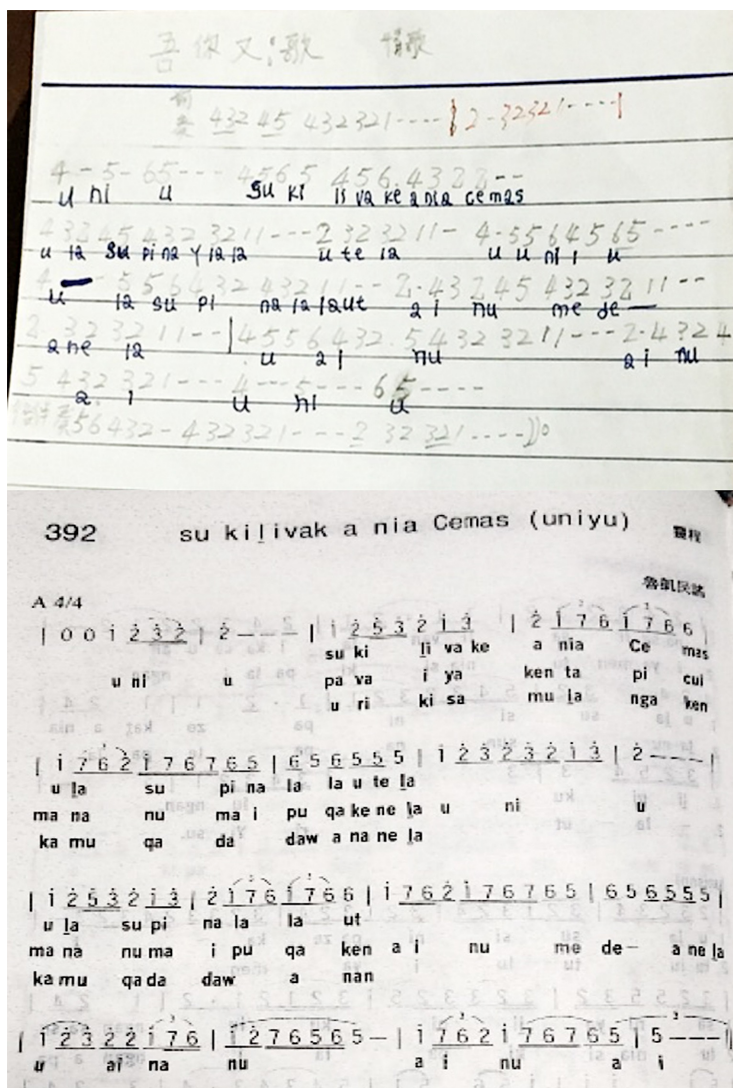 吾你又:歌 情歌
前奏 432 45 432321---- 2-32321----
4-5-65--- 4565 456.4322--
u ni u su ki li va ke a nia cemas
43245 432 3211--- 232 3211- 4-5564565----
u la su pi na y la la u te la u u ni i u
4--- 556432 43211--- 2.43245 432 3211--
u la su pi na la la ut a i nu me de —
2.32 3211--|4556432.5432 3211---2-4324
a ne la u ai nu ai nu
5 432 321--- 4---5---- 65----
a i u ni u
56432-432321----2 32 321----
392 su kiḻivak a nia Cemas (uniyu) 靈程
魯凱民謠
A 4/4
| 0 0 i̇ 2̇ 3̇ 2̇ | 2̇ - - - | i̇ 2̇ 5̇ 3̇ 2̇ i̇ 3̇ | 2̇ i̇ 7 6 i̇ 7 6 6 |
u ni u su ki ḻi va ke a nia Ce mas
pa va i ya ken ta pi cui
u ri ki sa mu ḻa nga ken
| i̇ 7 6 2̇ i̇ 7 6 7 6 5 | 6 5 6 5 5 5 | i̇ 2̇ 3̇ 2̇ 3̇ 2̇ i̇ 3̇ | 2̇ - - - |
u ḻa su pi na ḻa la u te ḻa
ma na nu ma i pu qa ke ne ḻa u ni u
ka mu qa da daw a na ne ḻa
| i̇ 2̇ 5̇ 3̇ 2̇ i̇ 3̇ | 2̇ i̇ 7 6 i̇ 7 6 6 | i̇ 7 6 2̇ i̇ 7 6 7 6 5 | 6 5 6 5 5 5 |
u ḻa su pi na la la ut
ma na nu ma i pu qa ken a i nu me de— a ne ḻa
ka mu qa da daw a nan
| i̇ 2̇ 3̇ 2̇ 2̇ i̇ 7 6 | i̇ 2̇ 7 6 5 6 5 - | i̇ 7 6 2̇ i̇ 7 6 7 6 5 | 5 - - - |
u ai na nu a i nu a i